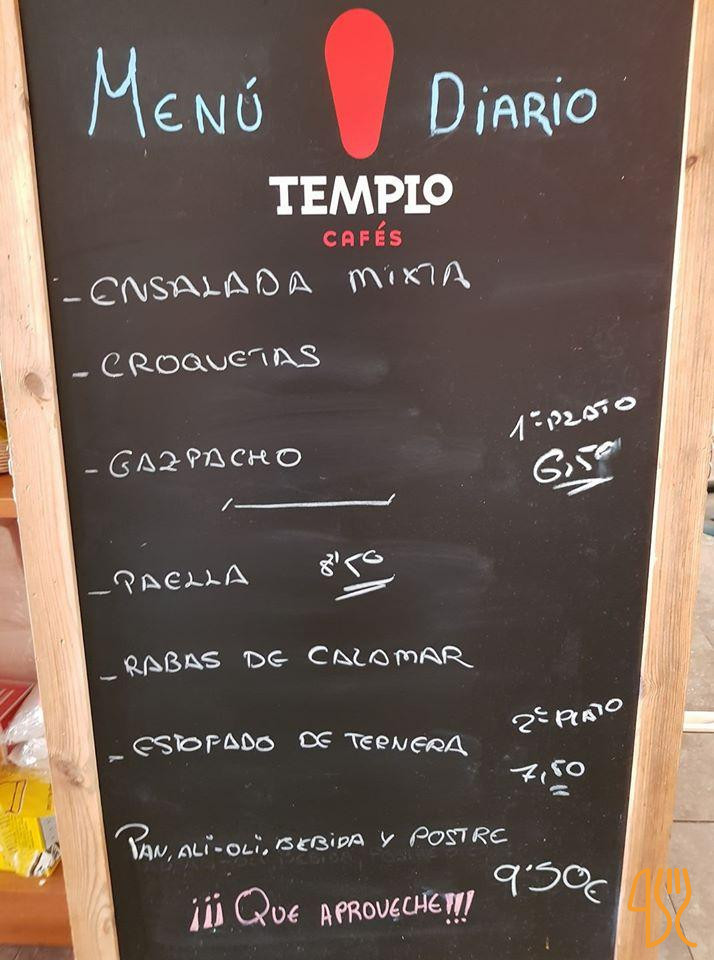 MENÚ DIARIO
TEMPLO
CAFÉS
- ENSALADA MIXTA
- CROQUETAS
1º PLATO
- GAZPACHO 6,50
- PAELLA 8'50
- RABAS DE CALAMAR
2º PLATO
- ESTOFADO DE TERNERA
7,50
PAN, ALI-OLI, BEBIDA Y POSTRE
9'50€
¡¡¡ QUE APROVECHE!!!